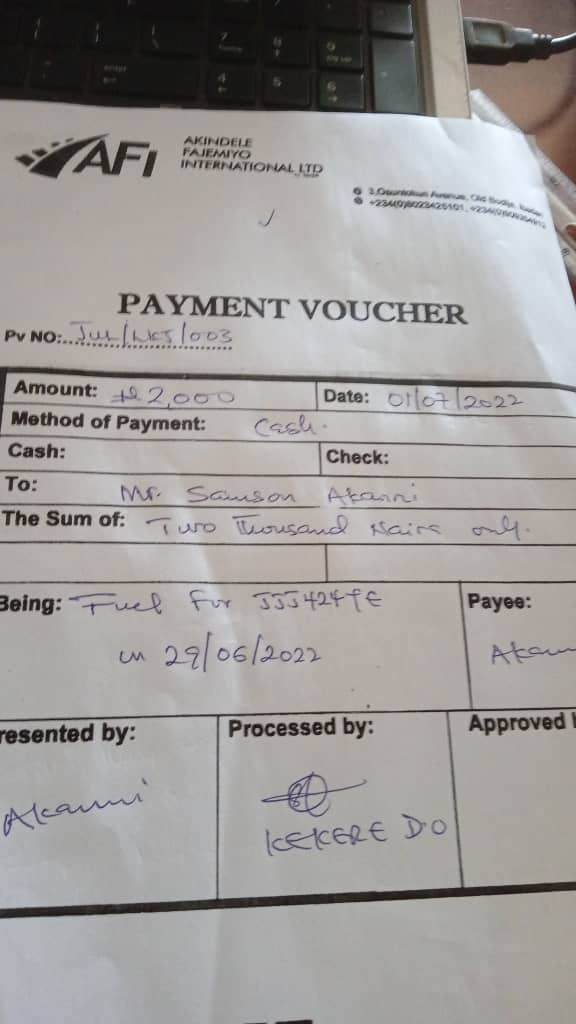 AFI
AKINDELE
FAJEMIYO
INTERNATIONAL LTD
Avenue, Old Bodija, Ibadan
PAYMENT VOUCHER
Pv NO: JUL/ /003
Amount: ₦2,000
Date: 01/07/2022
Method of Payment: Cash.
Cash:
Check:
To: Mr. Samson Akanni
The Sum of: Two Thousand Naira only.
Being: Fuel for JJJ424YE
on 29/06/2022
Payee:
Akann
resented by:
Processed by:
Approved
Akanni
KEKERE D.O